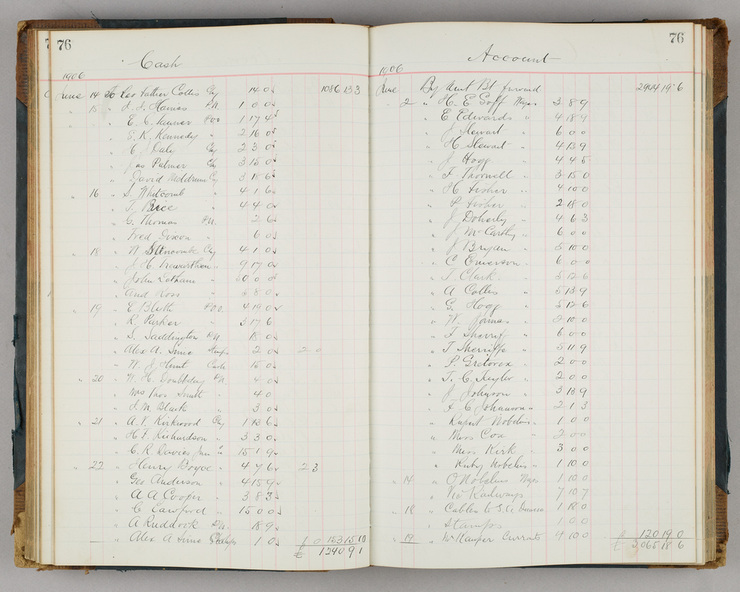 76
Cash
1906
June 14 To Geo Father Collis Cq 14 0 1086 13 3
15 " J. J. Hames P.N. 1 0 0
" E. C. Skinner P.O.O 1 17 4
" E. K. Kennedy " 2 16 0
" H. Daly Cq 2 3 0
" Jas Palmer Cq 3 15 0
" David Meldrum Cq 3 18 6
16 " S. Whitcomb " 4 1 6
" T. Price " 4 4 0
" G. Thomas P.N. 2 6
" Fred Dixon " 6 0
18 " W. Cq 4 1 0
" J. H. Trewartham " 9 17 0
" John Latham "
" And Ross "
19 " E Blyth P.O.O 4 19 0
" R. Parker " 3 17 6
" S. Saddington P.N. 15 0
" Alex A. Sims Stamps 2 0 2 0
" W. J. Hunt Cash 15 0
20 " W. H. P.N. 4 0
" Mrs Thos Smith " 4 0
" J. M. Black " 3 0
21 " A. V. Kirkwood Cq 1 13 6
" H. F. Richardson " 3 3 0
" C. R. Davies Junr " 15 1 9
22 " Henry Boyce " 4 7 6 2 3
" Geo Anderson " 4 15 9
" A A Cooper " 3 8 3
" C Cawford " 15 0 0
" A Ruddock P.N. 18 9
" Alex A Sims Stamps 1 0 153 15 10
£ 1240 9 1
76
Account
1906
June By Amt Bt forward 2944 19 6
2 " H. E. Goff Wages 3 8 9
" E Edwards " 4 18 9
" J Stewart " 6 0 0
" H. Stewart " 4 13 9
" J Hogg " 4 4 5
" F Thornell " 3 15 0
" H. Fisher " 4 10 0
" P. Fisher " 2 18 0
" J. Doherty " 4 6 3
" J McCarthy " 6 0 0
" J Bryan " 5 10 0
" C Emerson " 6 0 0
" T. Clark " 5 12 6
" A Collis " 5 13 9
" G. Hogg " 5 12 6
" W. " 2 10 0
" F " 6 0 0
" T Sherriffs " 5 11 9
" P. " 2 0 0
" T. C. Taylor " 2 0 0
" J Johnson " 3 13 9
" F C Johnson " 2 1 3
" Rupert Nobelius " 1 0 0
" Miss Cox " 2 0 0
" Miss Kirk " 3 0 0
" Ruby Nobelius " 1 10 0
14 " O Nobelius Wages 1 10 0
" Vic Railways 7 10 7
18 " Cables to 1 18 0
" Stamps 1 0 0
19 " Currants 4 10 0 120 19 0
£ 3065 18 6